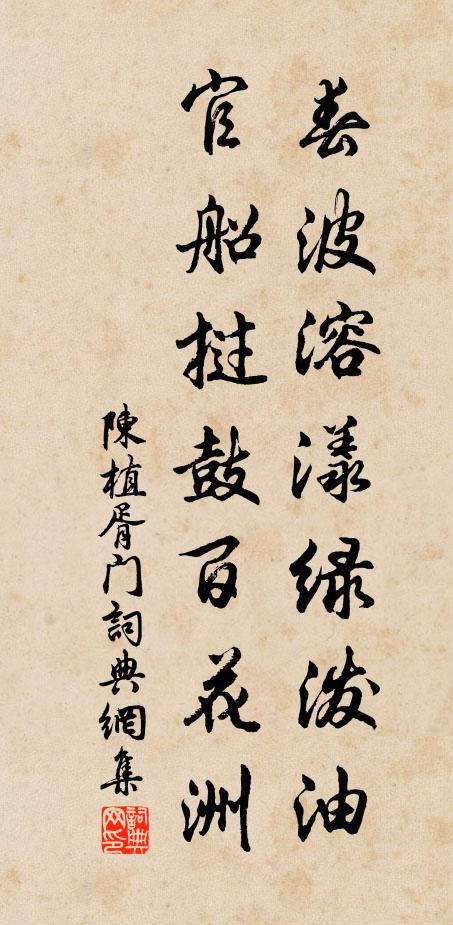 春波溶漾绿泼油
官船挝鼓百花洲
陳植胥门詞典網集
詞典网印